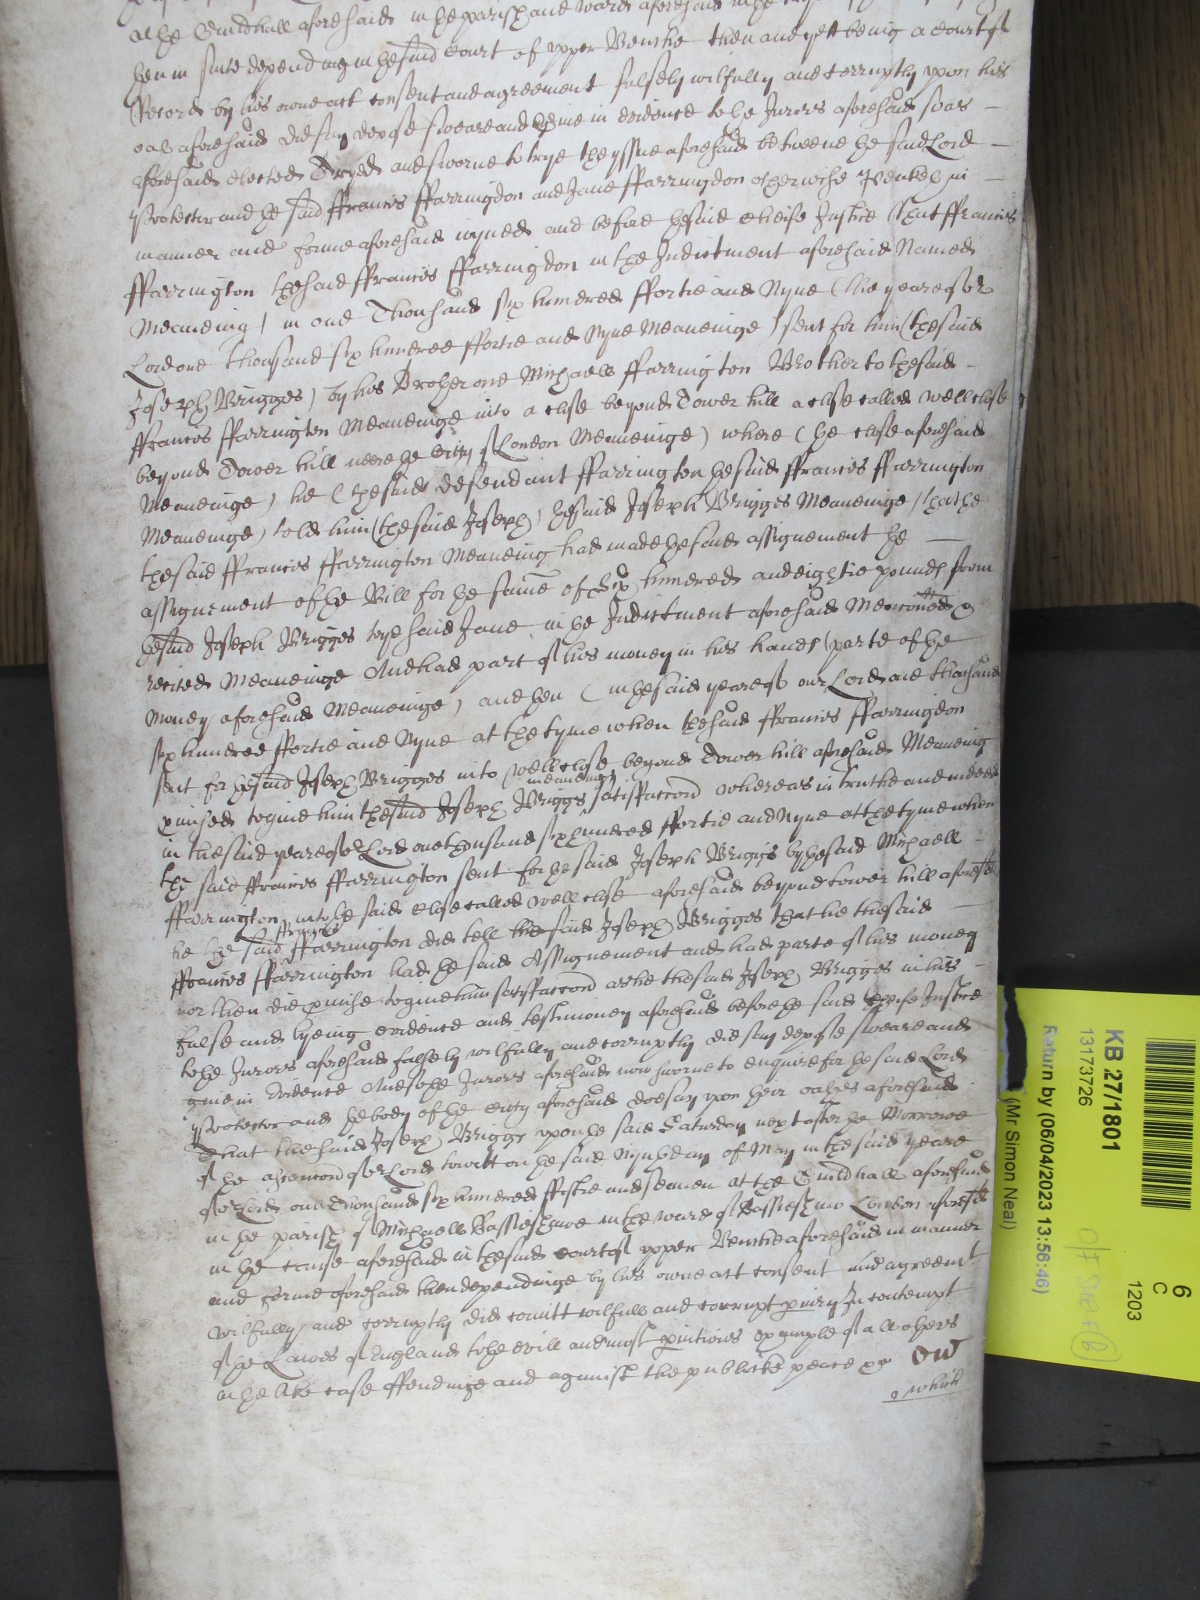 at the Guildhall aforesaid in the parish and ward aforesaid in the
then in suite depending in the said Court of upper Benche then and yett being a Court of
Record by his owne act consent and agreement falsely wilfully and corruptly upon his
oath aforesaid did say depose sweare and give in evidence to the Jurors aforesaid soe as
aforesaid elected tryed and sworne to trye the yssue aforesaid betweene the said Lord
Protector and the said ffrancis ffarringdon and Jane ffarringdon otherwise in
manner and forme aforesaid ioyned and before the said cheife Justice That ffrancis
ffarrington the said ffrancis ffarringdon in the Indictment aforesaid Named
Meaneing) in one Thousand six hundred ffortie and Nyne (the yeare of or
Lord one thousand six hundred ffortie and Nyne Meaneinge) sent for him (the said
Joseph Brigges) by his Brother one Michaell ffarrington Brother to the said
ffrancis ffarrington Meaneinge into a close beyond Tower hill a close called Wellclose
beyond Tower hill neere the Citty of London Meaneinge) where (the close aforesaid
Meaneinge) he (the said defendant ffarrington the said ffrancis ffarrington
Meaneinge) told him (the said Joseph) the said Joseph Brigges Meaneinge) that he
the said ffrancis ffarrington Meaneing had made the said assignement the
assignement of the Bill for the same of Six hundred and eightie pounds from
the said Joseph Brigges to the said Jane in the Indictment aforesaid Menconed &
recited Meaneinge And had part of his money in his hands (parte of the
money aforesaid Meaneinge) and then (in the said yeare of our Lord one thousand
six hundred ffortie and Nyne at the tyme when the said ffrancis ffarringdon
sent for the said Joseph Brigges into Wellclose beyond Tower hill aforesaid Meaneing
pmised to give him the said Joseph Briggs meaneing satisfaccon whereas in truthe and indeed
in the said yeare of or Lord one thousand six hundred ffortie and Nyne at the tyme when
the said ffrancis ffarrington sent for the said Joseph Briggs by the said Michaell
ffarrington into the said close called Wellclose aforesaid beyond tower hill aforesd
he the said ffrancis ffarrington did tell the said Joseph Brigges that he the said
ffrancis ffarrington had the said Assignement and had parte of his money
nor then did pmise to give him satisfaccon as he the said Joseph Brigges in his
false and lyeing evidence and testimoney aforesaid before the said Cheife Justice
to the Jurors aforesaid falsely wilfully and corruptly did say depose sweare and
give in Evidence And so the Jurors aforesaid now sworne to enquire for the said Lord
Protector and the body of the Citty aforesaid doe say upon their oathes aforesaid
That the said Joseph Briggs upon the said Saturday next after the Morrowe
of the Ascencon of or Lord to witt on the said Nynth day of May in the said yeare
of or Lord one thousand six hundred ffiftie and seaven at the Guildhall aforesaid
in the parish of Michaell Bassieshawe in the ward of Bassieshaw London aforesd
in the cause aforesaid in the said Court of upper Benche aforesaid in manner
and forme aforesaid then dependinge by his owne act consent and agreemt
wilfully and corruptly did comitt wilfull and corrupt piury In contempt
of the Lawes of England to the evill and most pnitious example of all others
in the like case offendinge and against the publicke peace &c
which
KB 27/1801
13173726
Return by (06/04/2023 13:56:46)
(Mr Simon Neal)
6
C
1203